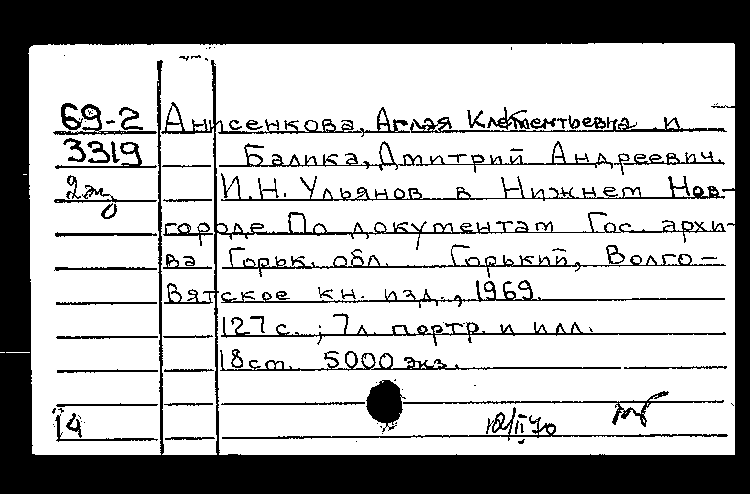 69-2 Анисенкова, Аглая Клементьевна и
3319 Балика, Дмитрий Андреевич.
2экз И.Н. Ульянов в Нижнем Нов-
городе По документам Гос. архи-
ва Горьк. обл. Горький, Волго-
Вятское кн. изд., 1969.
127 с.; 7л. портр. и илл.
18 cm. 5000 экз.
14